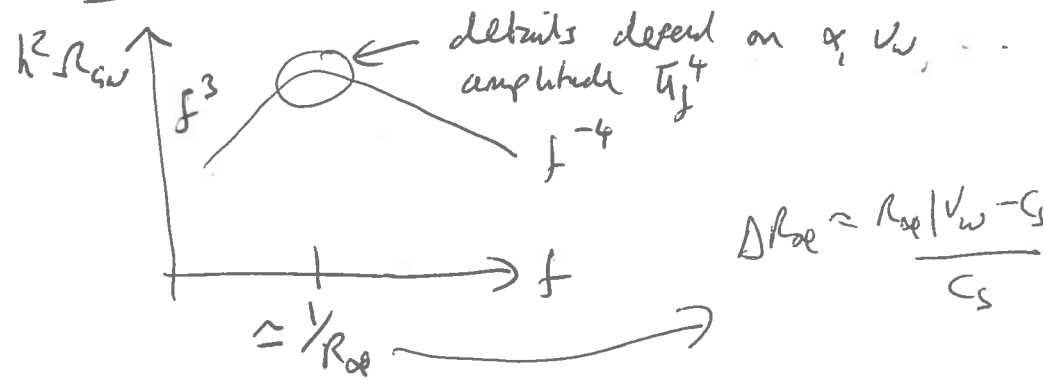 h² Ω_GW
details depend on α, v_w, ...
amplitude Ū_f⁴
f³
f⁻⁴
ΔR_* ≈ R_* |v_w - c_s
c_s
f
≃ 1/R_*